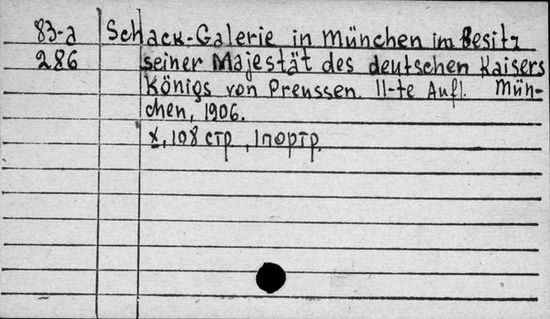 83-a Schack-Galerie in München im Besitz
286 seiner Majestät des deutschen Kaisers
Königs von Preussen. 11-te Aufl. Mün-
chen, 1906.
X, 108 стр, 1 портр.